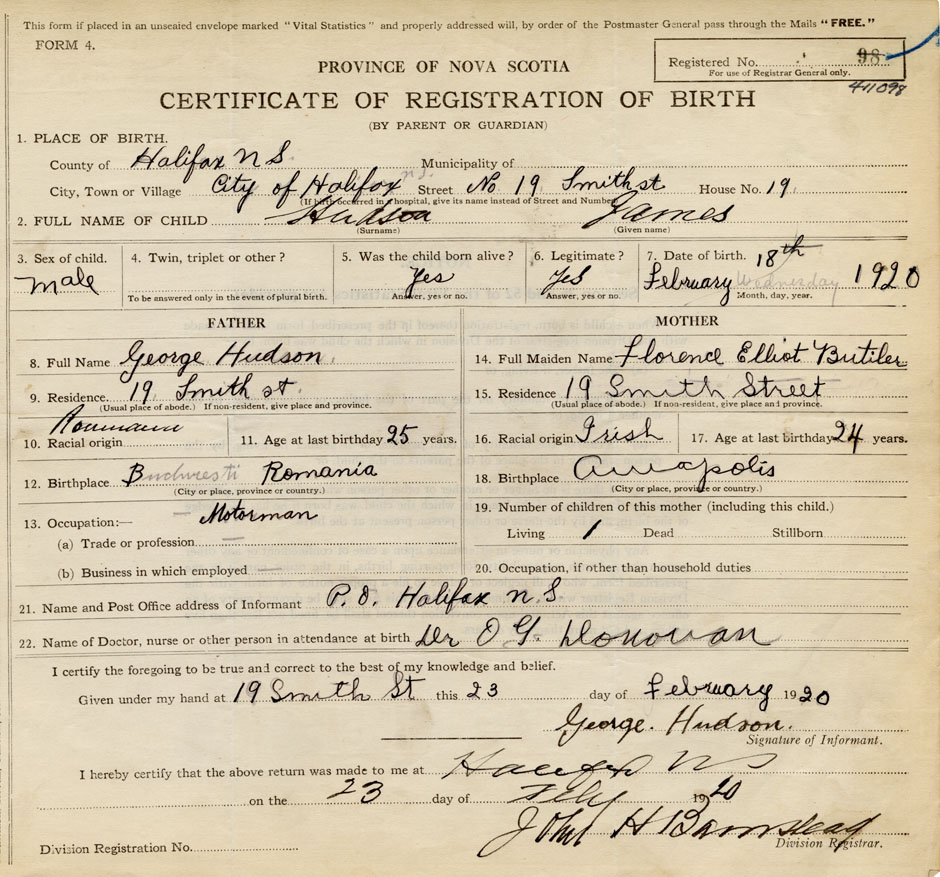 This form if placed in an unsealed envelope marked "Vital Statistics" and properly addressed will, by order of the Postmaster General pass through the Mails "FREE."
FORM 4.
Registered No. 98
For use of Registrar General only.
411098
PROVINCE OF NOVA SCOTIA
CERTIFICATE OF REGISTRATION OF BIRTH
(BY PARENT OR GUARDIAN)
1. PLACE OF BIRTH.
County of Halifax N S. Municipality of
City, Town or Village City of Halifax n.s. Street No 19 Smith st House No. 19.
(If birth occurred in a hospital, give its name instead of Street and Number)
2. FULL NAME OF CHILD Hudson James
(Surname) (Given name)
3. Sex of child. male
4. Twin, triplet or other?
To be answered only in the event of plural birth.
5. Was the child born alive? Yes
Answer, yes or no.
6. Legitimate? Yes
Answer, yes or no.
7. Date of birth. 18th
February Wednesday 1920
Month, day, year.
FATHER
8. Full Name George Hudson.
9. Residence. 19 Smith st.
(Usual place of abode.) If non-resident, give place and province.
10. Racial origin
11. Age at last birthday 25 years.
12. Birthplace Romania
(City or place, province or country.)
13. Occupation:— Motorman
(a) Trade or profession
(b) Business in which employed
MOTHER
14. Full Maiden Name Florence Elliot Butiler
15. Residence 19 Smith Street
(Usual place of abode.) If non-resident, give place and province.
16. Racial origin Irish
17. Age at last birthday 24 years.
18. Birthplace
(City or place, province or country.)
19. Number of children of this mother (including this child.)
Living 1 Dead Stillborn
20. Occupation, if other than household duties
21. Name and Post Office address of Informant P.O. Halifax N.S
22. Name of Doctor, nurse or other person in attendance at birth Dr O G. Donovan
I certify the foregoing to be true and correct to the best of my knowledge and belief.
Given under my hand at 19 Smith St this 23 day of February 1920
George. Hudson.
Signature of Informant.
I hereby certify that the above return was made to me at Halifax N S
on the 23 day of Feby 1920
John H Barnstead
Division Registrar.
Division Registration No.